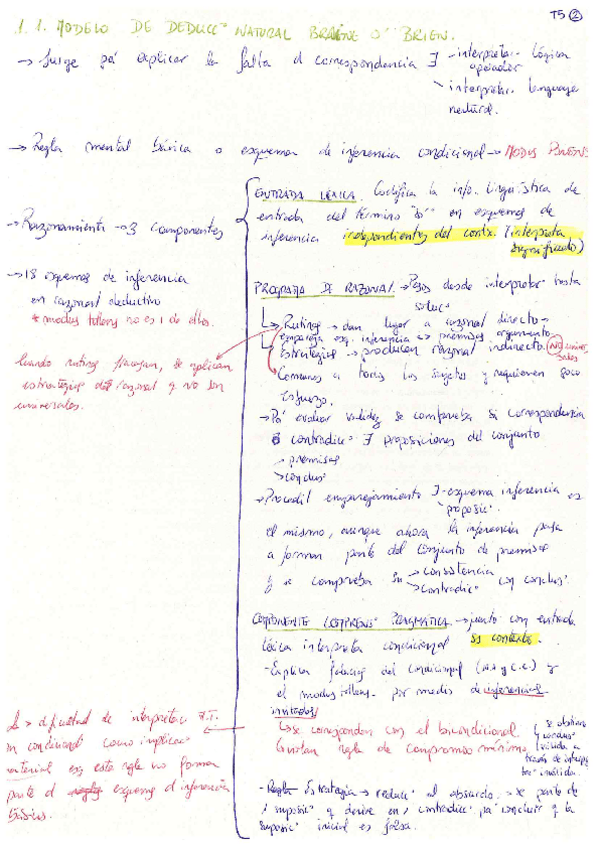 T5 ②
1.1. MODELO DE DEDUCC° NATURAL BRAINE O'BRIEN.
→ Surge pa' explicar la falta d correspondencia
interpretac. lógica
operador
interpretac. lenguaje
natural.
→ Regla mental básica o esquema de inferencia condicional → MODUS PONENS
→ Razonamiento → 3 componentes
→ 18 esquemas de inferencia
en razonat deductivo
* modus tollens no es 1 de ellos.
Cuando rutinas fracasan, se aplican
estrategias del razonat y no son
universales.
ENTRADA LÉXICA. Codifica la info. lingüística de
entrada del término "si" en esquemas de
inferencia independientes del contx. (interpreta
significado)
PROGRAMA DE RAZONAT. → Pasos desde interpretac° hasta
soluc°
Rutinas → dan lugar a razonat directo →
empareja esq. inferencia premisas argumento
Estrategias → producen razonat indirecto. (NO univer
sales)
Comunes a todos los sujetos y requieren poco
esfuerzo.
→ Pa' evaluar validez se comprueba si correspondencia
o contradicc° proposiciones del conjunto
→ premisas
→ conclus°
→ Procedit emparejamiento esquema inferencia es
proposic°
el mismo, aunque ahora la inferencia pasa
a formar parte del conjunto de premisas
y se comprueba su → consistencia
→ contradicc° con conclus°
COMPONENTE COMPRENS° PRAGMÁTICA → junto con entrada
léxica interpreta condicional contexto.
- Explica falacias del condicional (A.A y C.C.) y
el modus tollens. por medio de inferencias
invitadas
se corresponden con el bicondicional.
regla de compromiso mínimo
se
válida a
través de
inválida.
dificultad de interpretac°
condicional como implicac°
material esta regla no forma
parte d esquema d inferencia
básicos.
- Estrategia → reducc° al absurdo. → se parte de
1 suposic° q derive en 1 contradicc° pa' concluir q la
suposic° inicial es falsa.